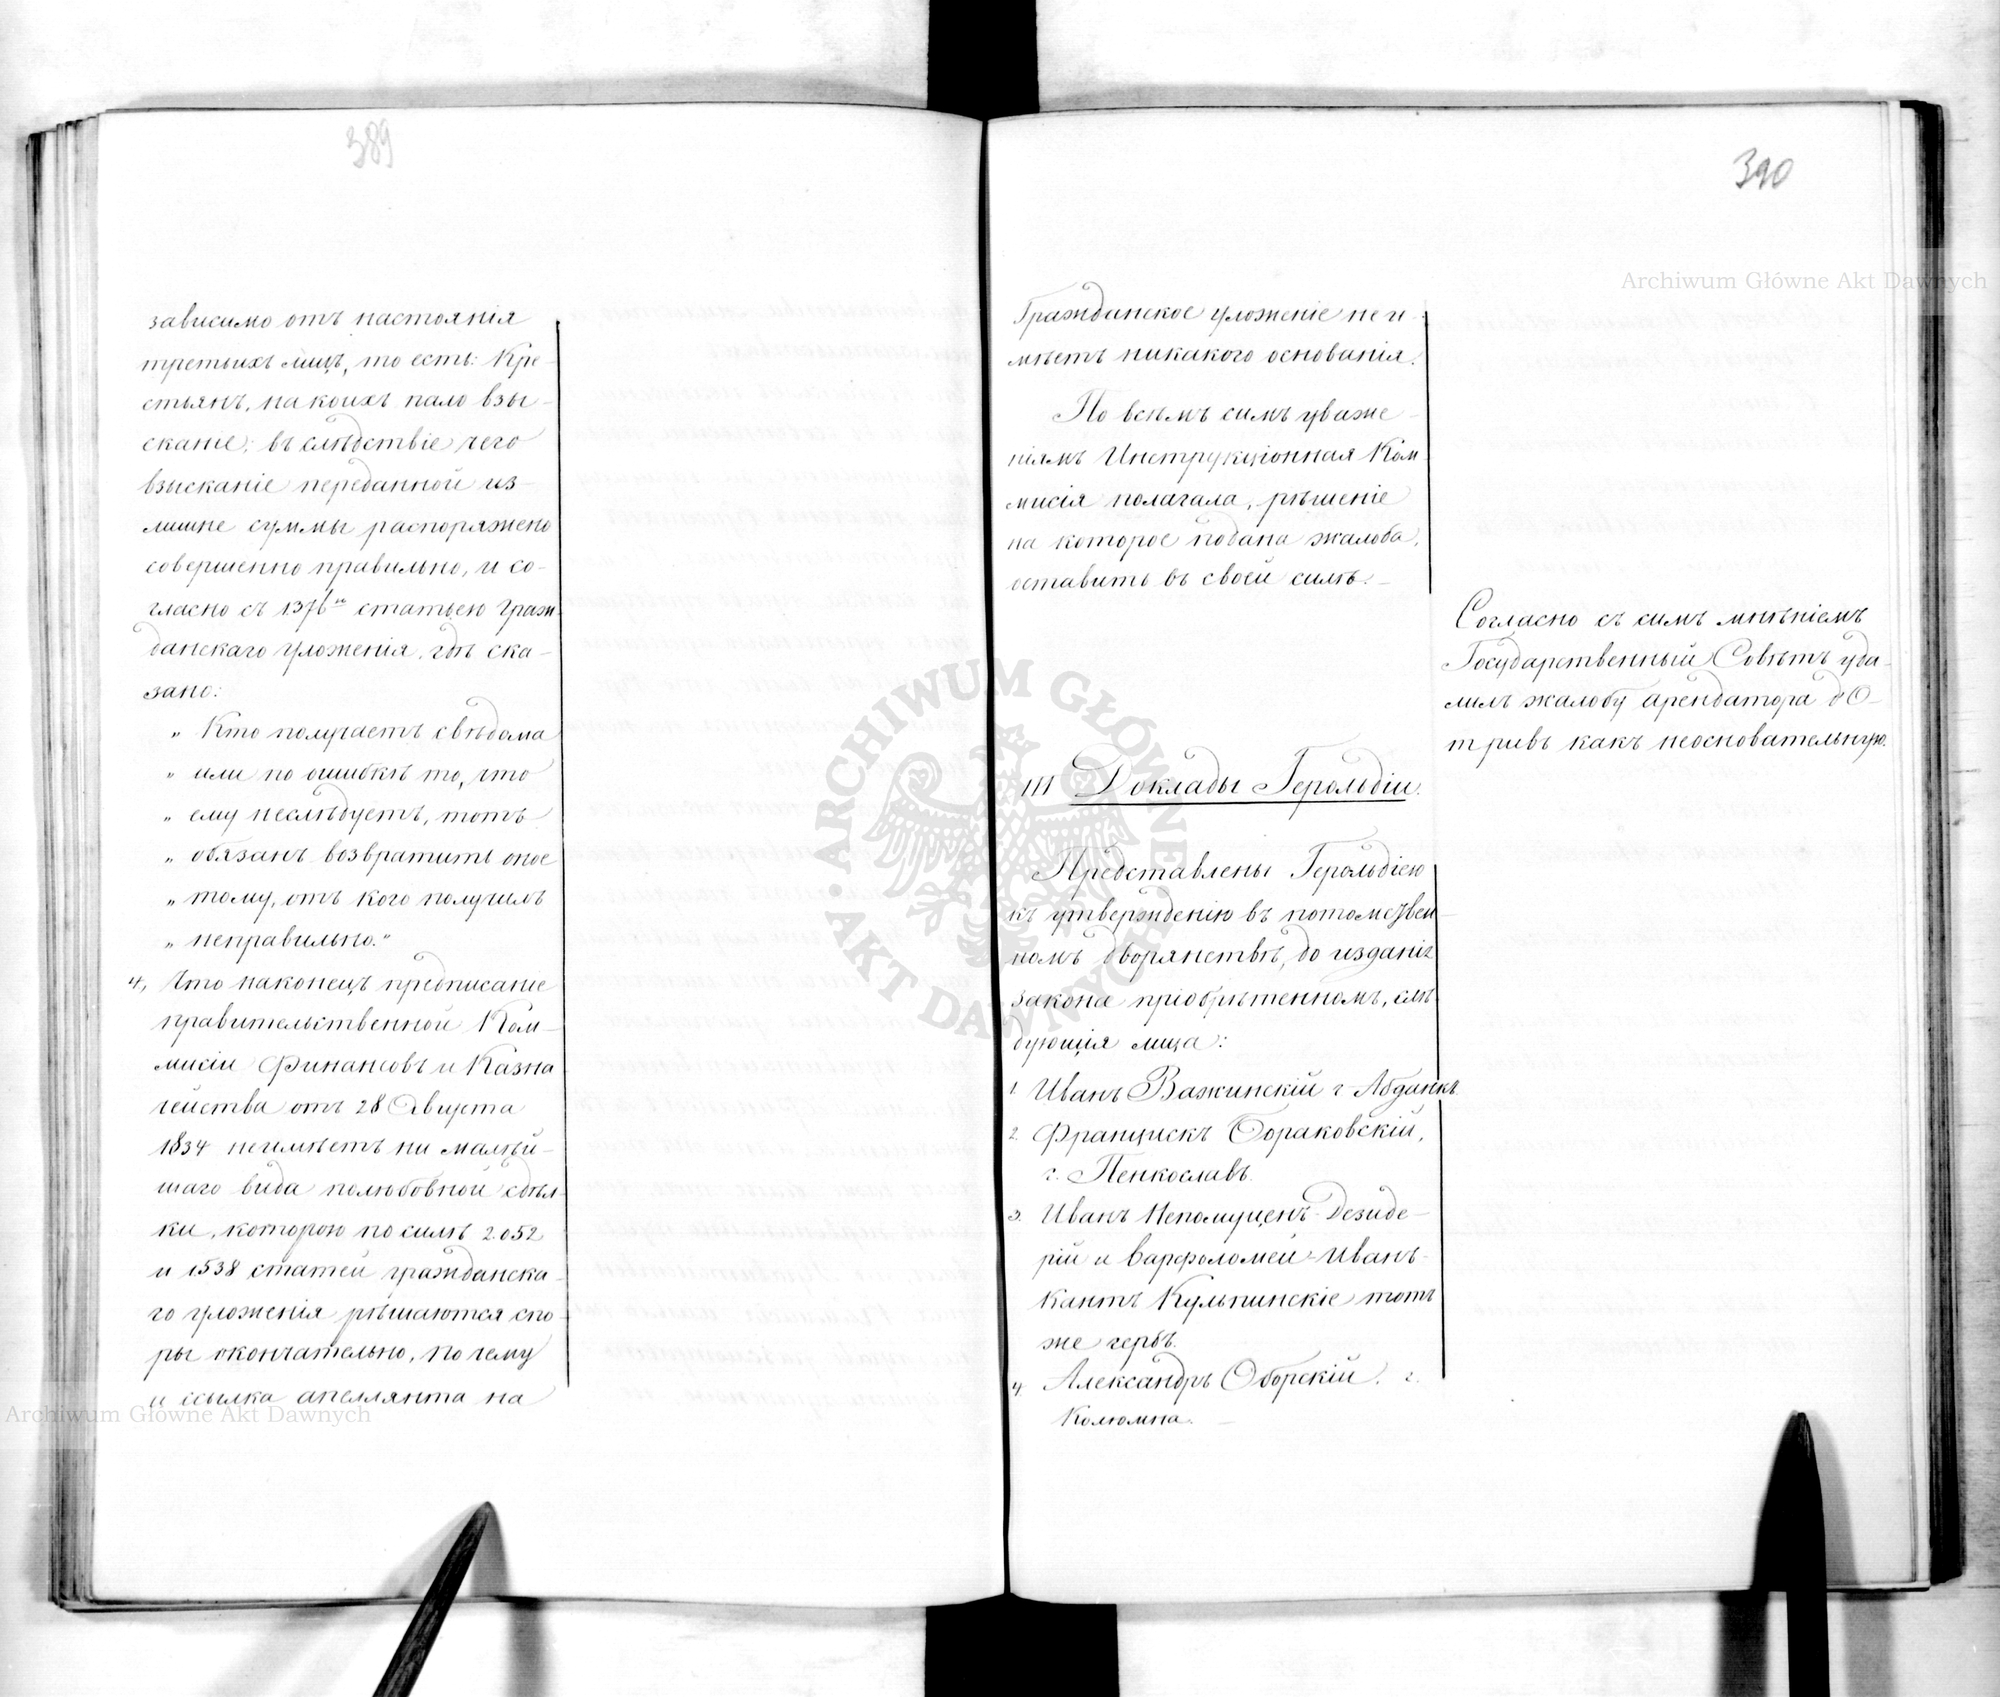 389
зависимо отъ настоянія
третьихъ лицъ, то есть: Кре-
стьянъ, на коихъ пало взы-
сканіе; въ слѣдствіе чего
взысканіе переданной из-
лишне суммы распоряжено
совершенно правильно, и со-
гласно съ 1376й статьею Граж-
данскаго уложенія, гдѣ ска-
зано:
„ Кто получаетъ свѣдома
„ или по ошибкѣ то, что
„ ему неслѣдуетъ, тотъ
„ обязанъ возвратить оное
„ тому, отъ кого получилъ
„ неправильно.“
4, Что наконецъ предписаніе
правительственной Ком-
мисіи Финансовъ и Казна
чейства отъ 28 Августа
1834 неимѣетъ ни малѣй-
шаго вида полюбовной сдѣл-
ки, которою по силѣ 2.052
и 1538 статей гражданска-
го уложенія рѣшаются спо-
ры окончательно, почему
и ссылка апеллянта на
390
Гражданское уложеніе неи-
мѣетъ никакого основанія.
По всѣмъ симъ уваже-
ніямъ Инструкціонная Ком-
мисія полагала, рѣшеніе
на которое подана жалоба,
оставить въ своей силѣ.-
Согласно съ симъ мнѣніемъ
Государственный Совѣтъ уда-
лилъ жалобу арендатора
какъ неосновательную.
III Доклады Герольдіи.
Представлены Герольдіею
къ утвержденію въ потомствен-
номъ дворянствѣ, до изданія
закона пріобрѣтенномъ, слѣ-
дующія лица:
1. Иванъ Важинскій г. Абданкъ.
2. Францискъ Бораковскій,
г. Пенкославъ.
3. Иванъ Непомуценъ-Дезиде-
рій и Варфоломей-Иванъ-
Кантъ Кульпинскіе тотъ
же гербъ.
4. Александръ Оборскій. г.
Колюмна. -
Archiwum Główne Akt Dawnych
Archiwum Główne Akt Dawnych
ARCHIWUM GŁÓWNE AKT DAWNYCH